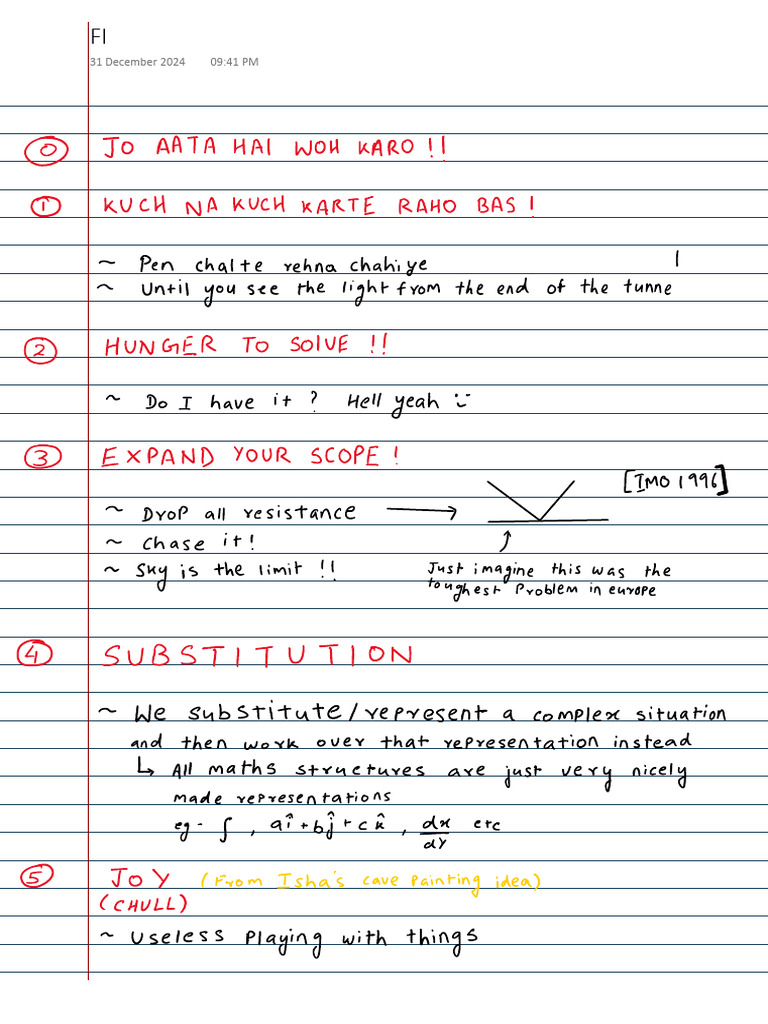 FI
31 December 2024 09:41 PM
0 JO AATA HAI WOH KARO !!
1 KUCH NA KUCH KARTE RAHO BAS !
~ Pen chalte rehna chahiye
~ Until you see the light from the end of the tunnel
2 HUNGER TO SOLVE !!
~ Do I have it ? Hell yeah :-
3 EXPAND YOUR SCOPE !
[IMO 1996]
~ Drop all resistance →
~ Chase it !
~ Sky is the limit !!
Just imagine this was the
toughest Problem in europe
4 SUBSTITUTION
~ We substitute/represent a complex situation
and then work over that representation instead
↳ All maths structures are just very nicely
made representations
eg - ∫ , aî + bĵ + ck̂ , dx/dy etc
5 JOY (From Isha's cave painting idea)
(CHULL)
~ Useless Playing with things